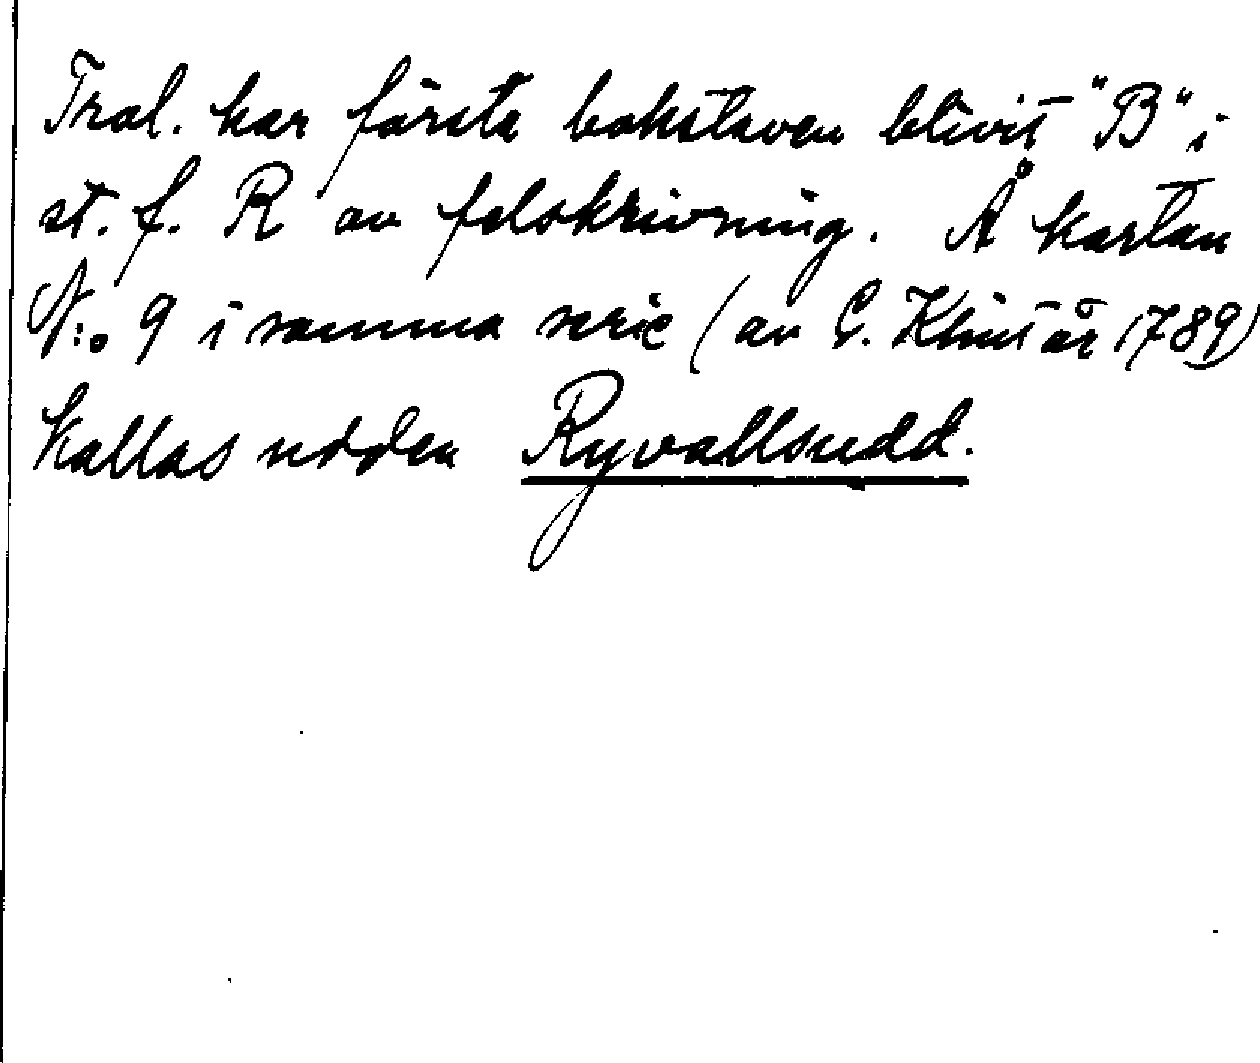 Trol. har första bokstaven blivit "B" i
st. f. R av felskrivning. Å kartan
N:o 9 i samma serie (av C. Klint år 1789)
kallas udden Ryvallsudd.